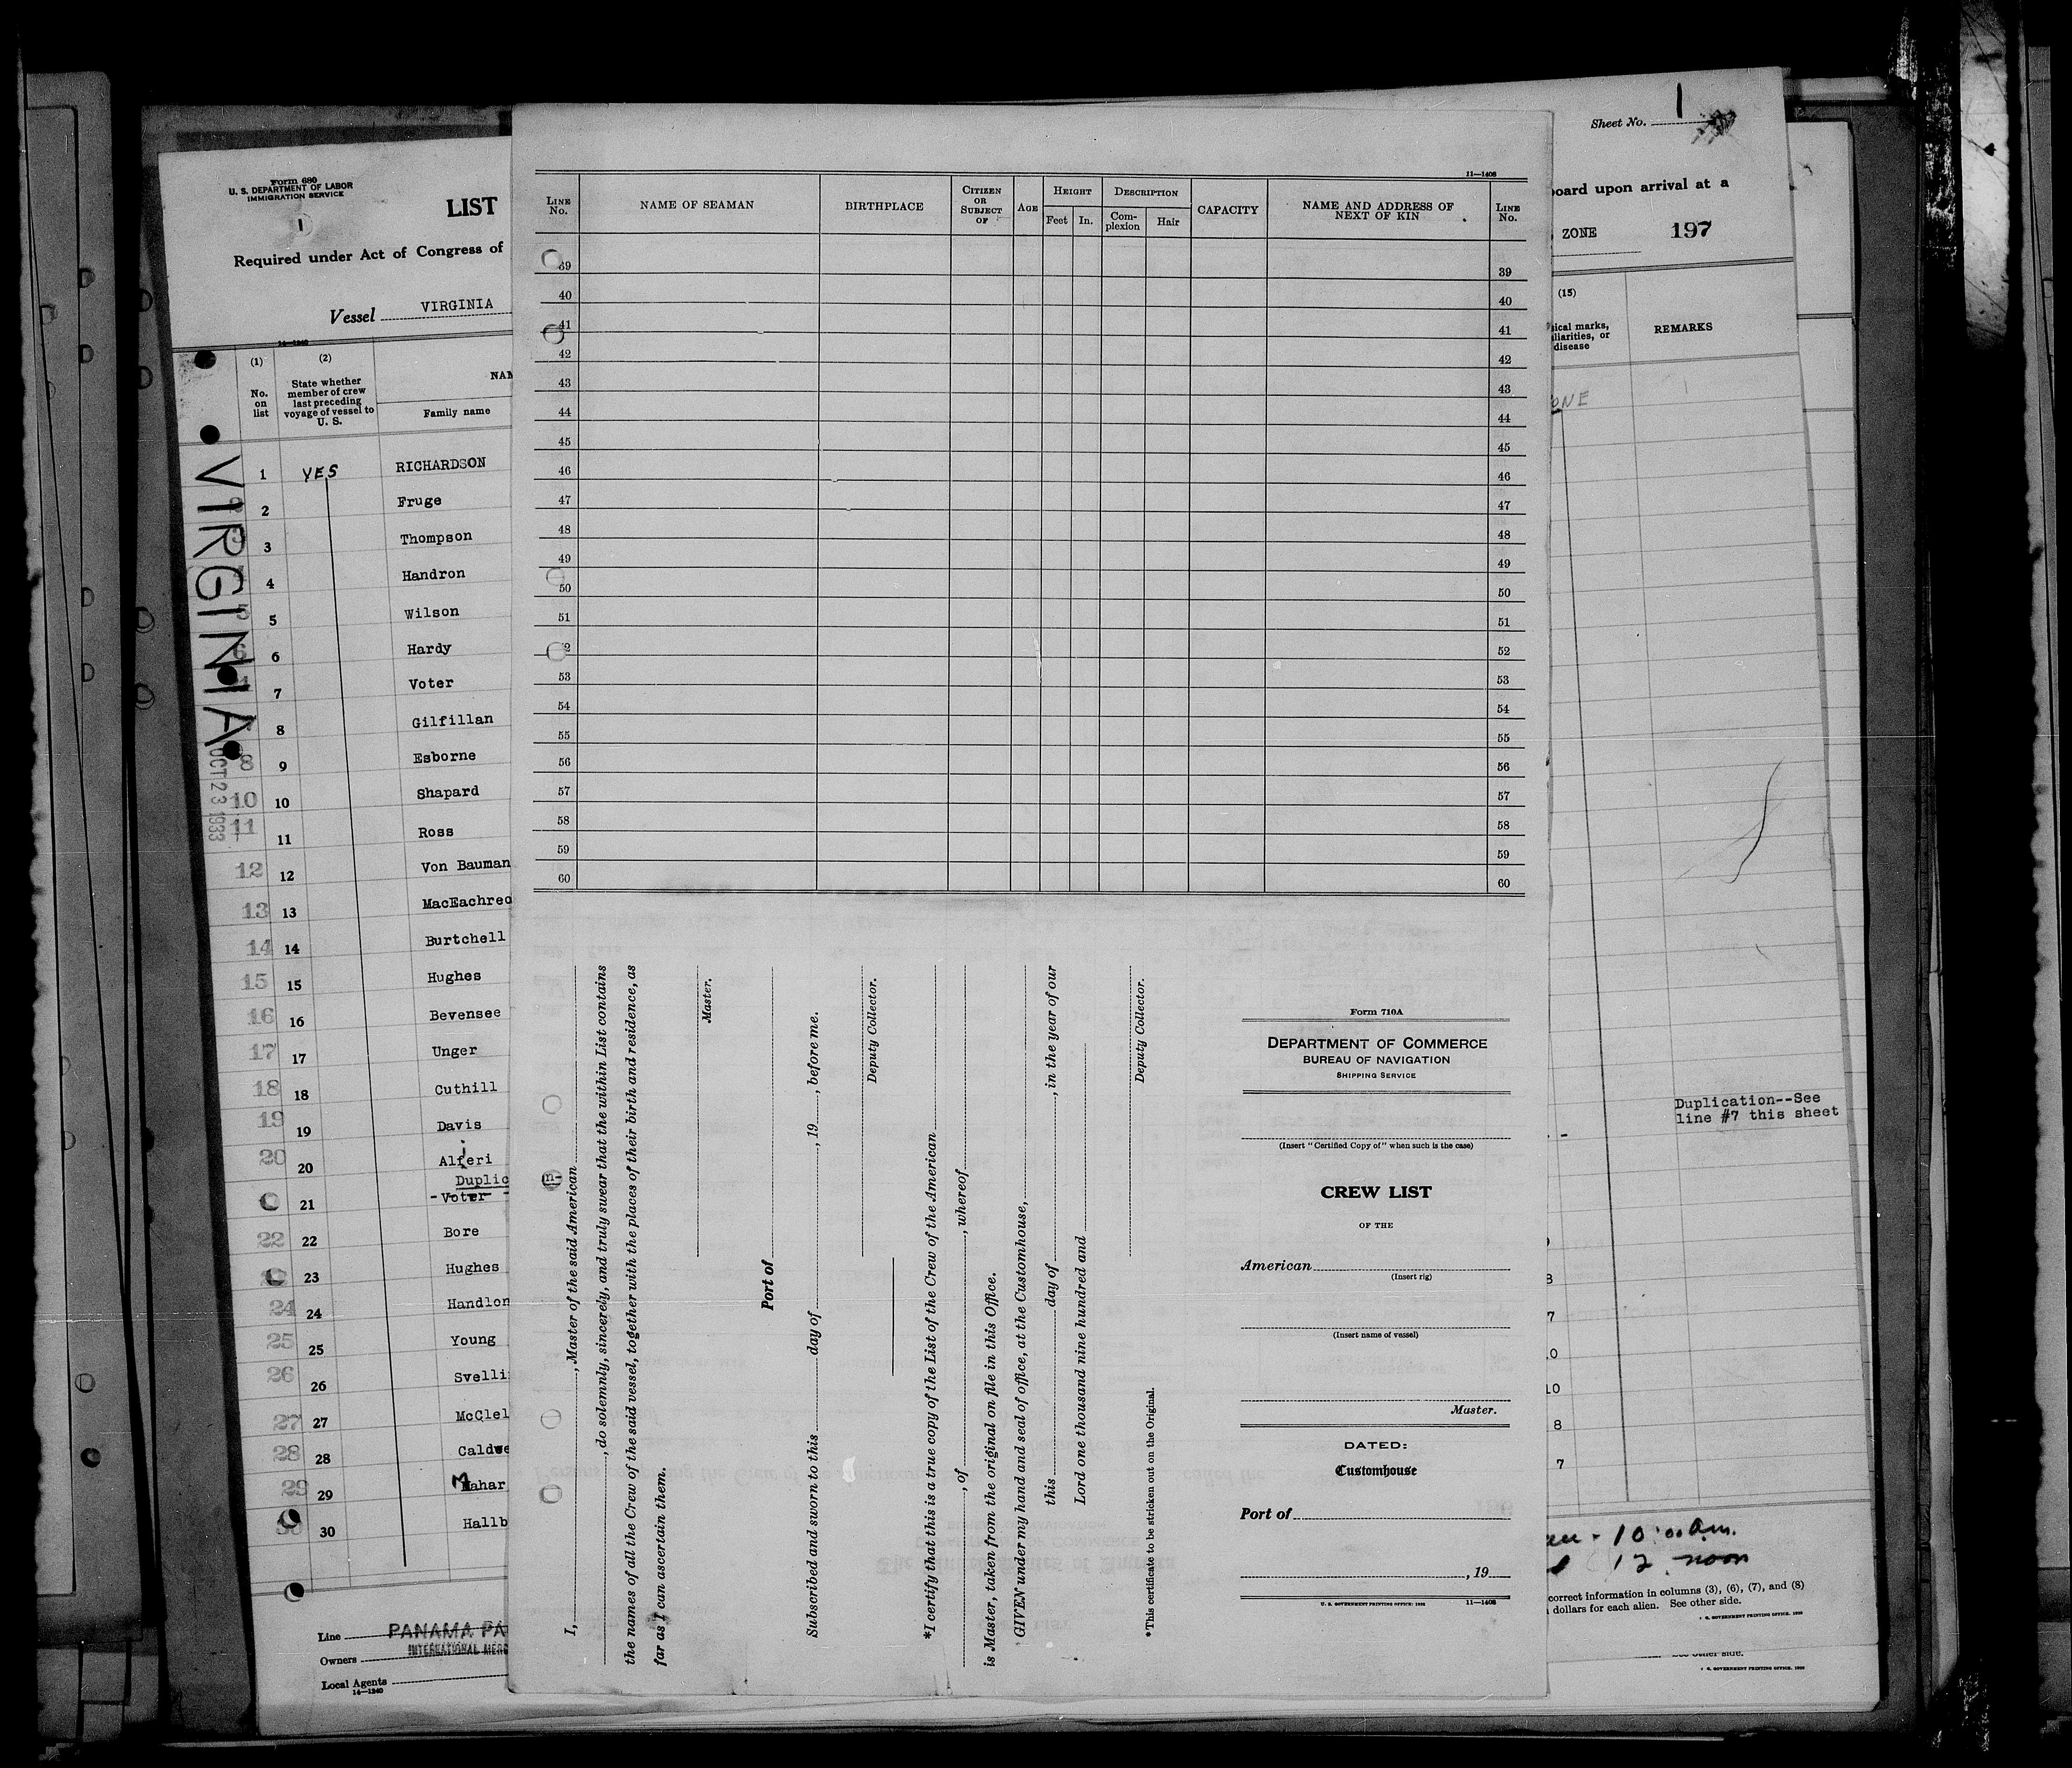 Form 680
U. S. DEPARTMENT OF LABOR
IMMIGRATION SERVICE
1
LIST
Required under Act of Congress of
Vessel VIRGINIA
14—1240
(1)
No. on list
(2)
State whether member of crew last preceding voyage of vessel to U. S.
Family name
VIRGINIA
OCT 23 1933
1 YES RICHARDSON
2 Fruge
3 Thompson
4 Handron
5 Wilson
6 Hardy
7 Voter
8 Gilfillan
8 9 Esborne
10 10 Shapard
11 11 Ross
12 12 Von Bauman
13 13 MacEachred
14 14 Burtchell
15 15 Hughes
16 16 Bevensee
17 17 Unger
18 18 Cuthill
19 19 Davis
20 20 Alferi
i
Duplic
21 -Voter
22 22 Bore
23 Hughes
24 24 Handlon
25 25 Young
26 26 Svelli
27 27 McClel
28 28 Caldwe
29 29 Mahar
30 Hallb
Line PANAMA PA
INTERNATIONAL MERC
Owners
Local Agents
14—1240
11—1408
LINE No.
NAME OF SEAMAN
BIRTHPLACE
CITIZEN OR SUBJECT OF
AGE
HEIGHT
Feet In.
DESCRIPTION
Complexion Hair
CAPACITY
NAME AND ADDRESS OF NEXT OF KIN
LINE No.
39 39
40 40
41 41
42 42
43 43
44 44
45 45
46 46
47 47
48 48
49 49
50 50
51 51
52 52
53 53
54 54
55 55
56 56
57 57
58 58
59 59
60 60
I, , Master of the said American
, do solemnly, sincerely, and truly swear that the within List contains
the names of all the Crew of the said vessel, together with the places of their birth and residence, as
far as I can ascertain them.
Master.
Port of
Subscribed and sworn to this day of , 19 , before me.
Deputy Collector.
*I certify that this is a true copy of the List of the Crew of the American
, of , whereof
is Master, taken from the original on file in this Office.
GIVEN under my hand and seal of office, at the Customhouse,
this day of , in the year of our
Lord one thousand nine hundred and
Deputy Collector.
*This certificate to be stricken out on the Original.
Form 710A
DEPARTMENT OF COMMERCE
BUREAU OF NAVIGATION
SHIPPING SERVICE
(Insert "Certified Copy of" when such is the case)
CREW LIST
OF THE
American
(Insert rig)
(Insert name of vessel)
Master.
DATED:
Customhouse
Port of
, 19
U. S. GOVERNMENT PRINTING OFFICE: 11—1408
Sheet No. 1
board upon arrival at a
ZONE 197
(15)
ical marks,
liarities, or
disease
REMARKS
ONE
Duplication--See
line #7 this sheet
8
7
10
8
7
10:00 am.
12 noon
correct information in columns (3), (6), (7), and (8)
dollars for each alien. See other side.
GOVERNMENT PRINTING OFFICE
See other side.
GOVERNMENT PRINTING OFFICE